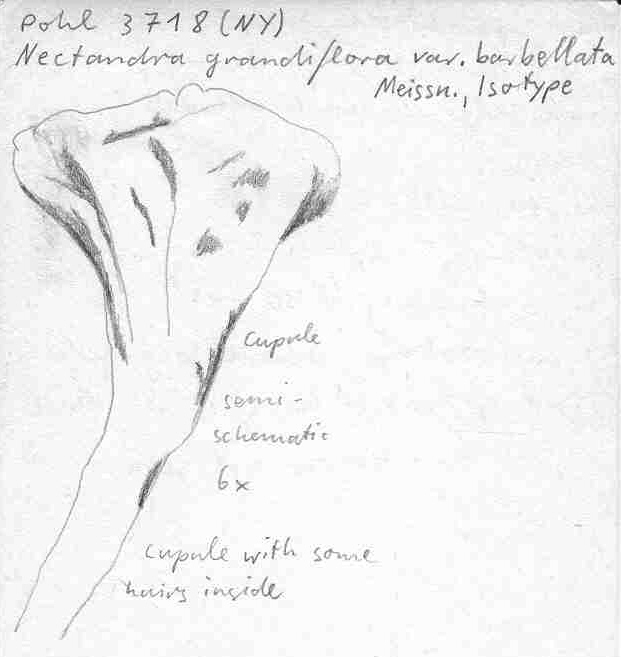 Pohl 3718 (NY)
Nectandra grandiflora var. barbellata
Meissn., Isotype
cupule
semi-
schematic
6x
cupule with some
hairs inside